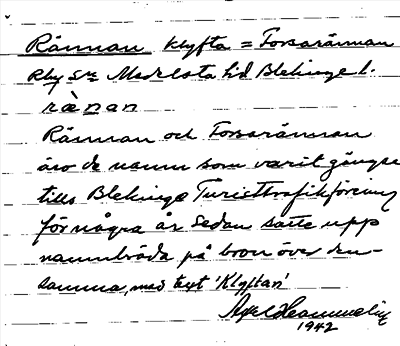 Rännan klyfta = Forsarännan
Rby Sn Medelsta hd Blekinge l.
rænan
Rännan och Forsarännan
äro de namn som varit gängse
tills Blekinge Turisttrafikförening
för några år sedan satte upp
namnbräda på bron över den-
samma, med text 'Klyftan'
Axel Hammelin
1942